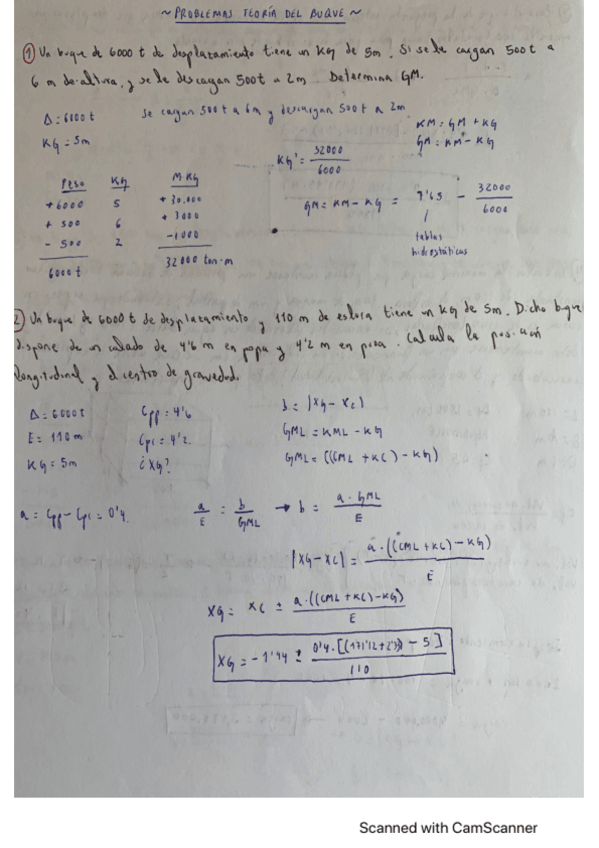 ~ PROBLEMAS TEORÍA DEL BUQUE ~
① Un buque de 6000 t de desplazamiento tiene un KG de 5m. Si se le cargan 500t a
6 m de altura, y se le descargan 500t a 2m. Determina GM.
Δ = 6000 t
se cargan 500 t a 6m y descargan 500 t a 2m
KG = 5m
KM = GM + KG
GM = KM - KG
KG' = 32000 / 6000
Peso KG M·KG
+6000 5 +30.000
+ 500 6 + 3000
- 500 2 -1000
6000 t 32000 tan·m
GM = KM - KG = 7'65 - 32000 / 6000
tablas
hidrostáticas
2) Un buque de 6000 t de desplazamiento y 110 m de eslora tiene un KG de 5m. Dicho buque
dispone de un calado de 4'6 m en popa y 4'2 m en proa. Calcula la posición
longitudinal y el centro de gravedad.
Δ = 6000t
E = 110m
KG = 5m
Cpp = 4'6
Cpr = 4'2
¿XG?
b = |XG - XC|
GML = KML - KG
GML = ((CML + KC) - KG)
a = Cpp - Cpr = 0'4.
a / E = b / GML → b = a · GML / E
|XG - XC| = a · ((CML + KC) - KG) / E
XG = XC ± a · ((CML + KC) - KG) / E
XG = -1'44 ± 0'4 · [(171'12 + 2'39) - 5] / 110
Scanned with CamScanner